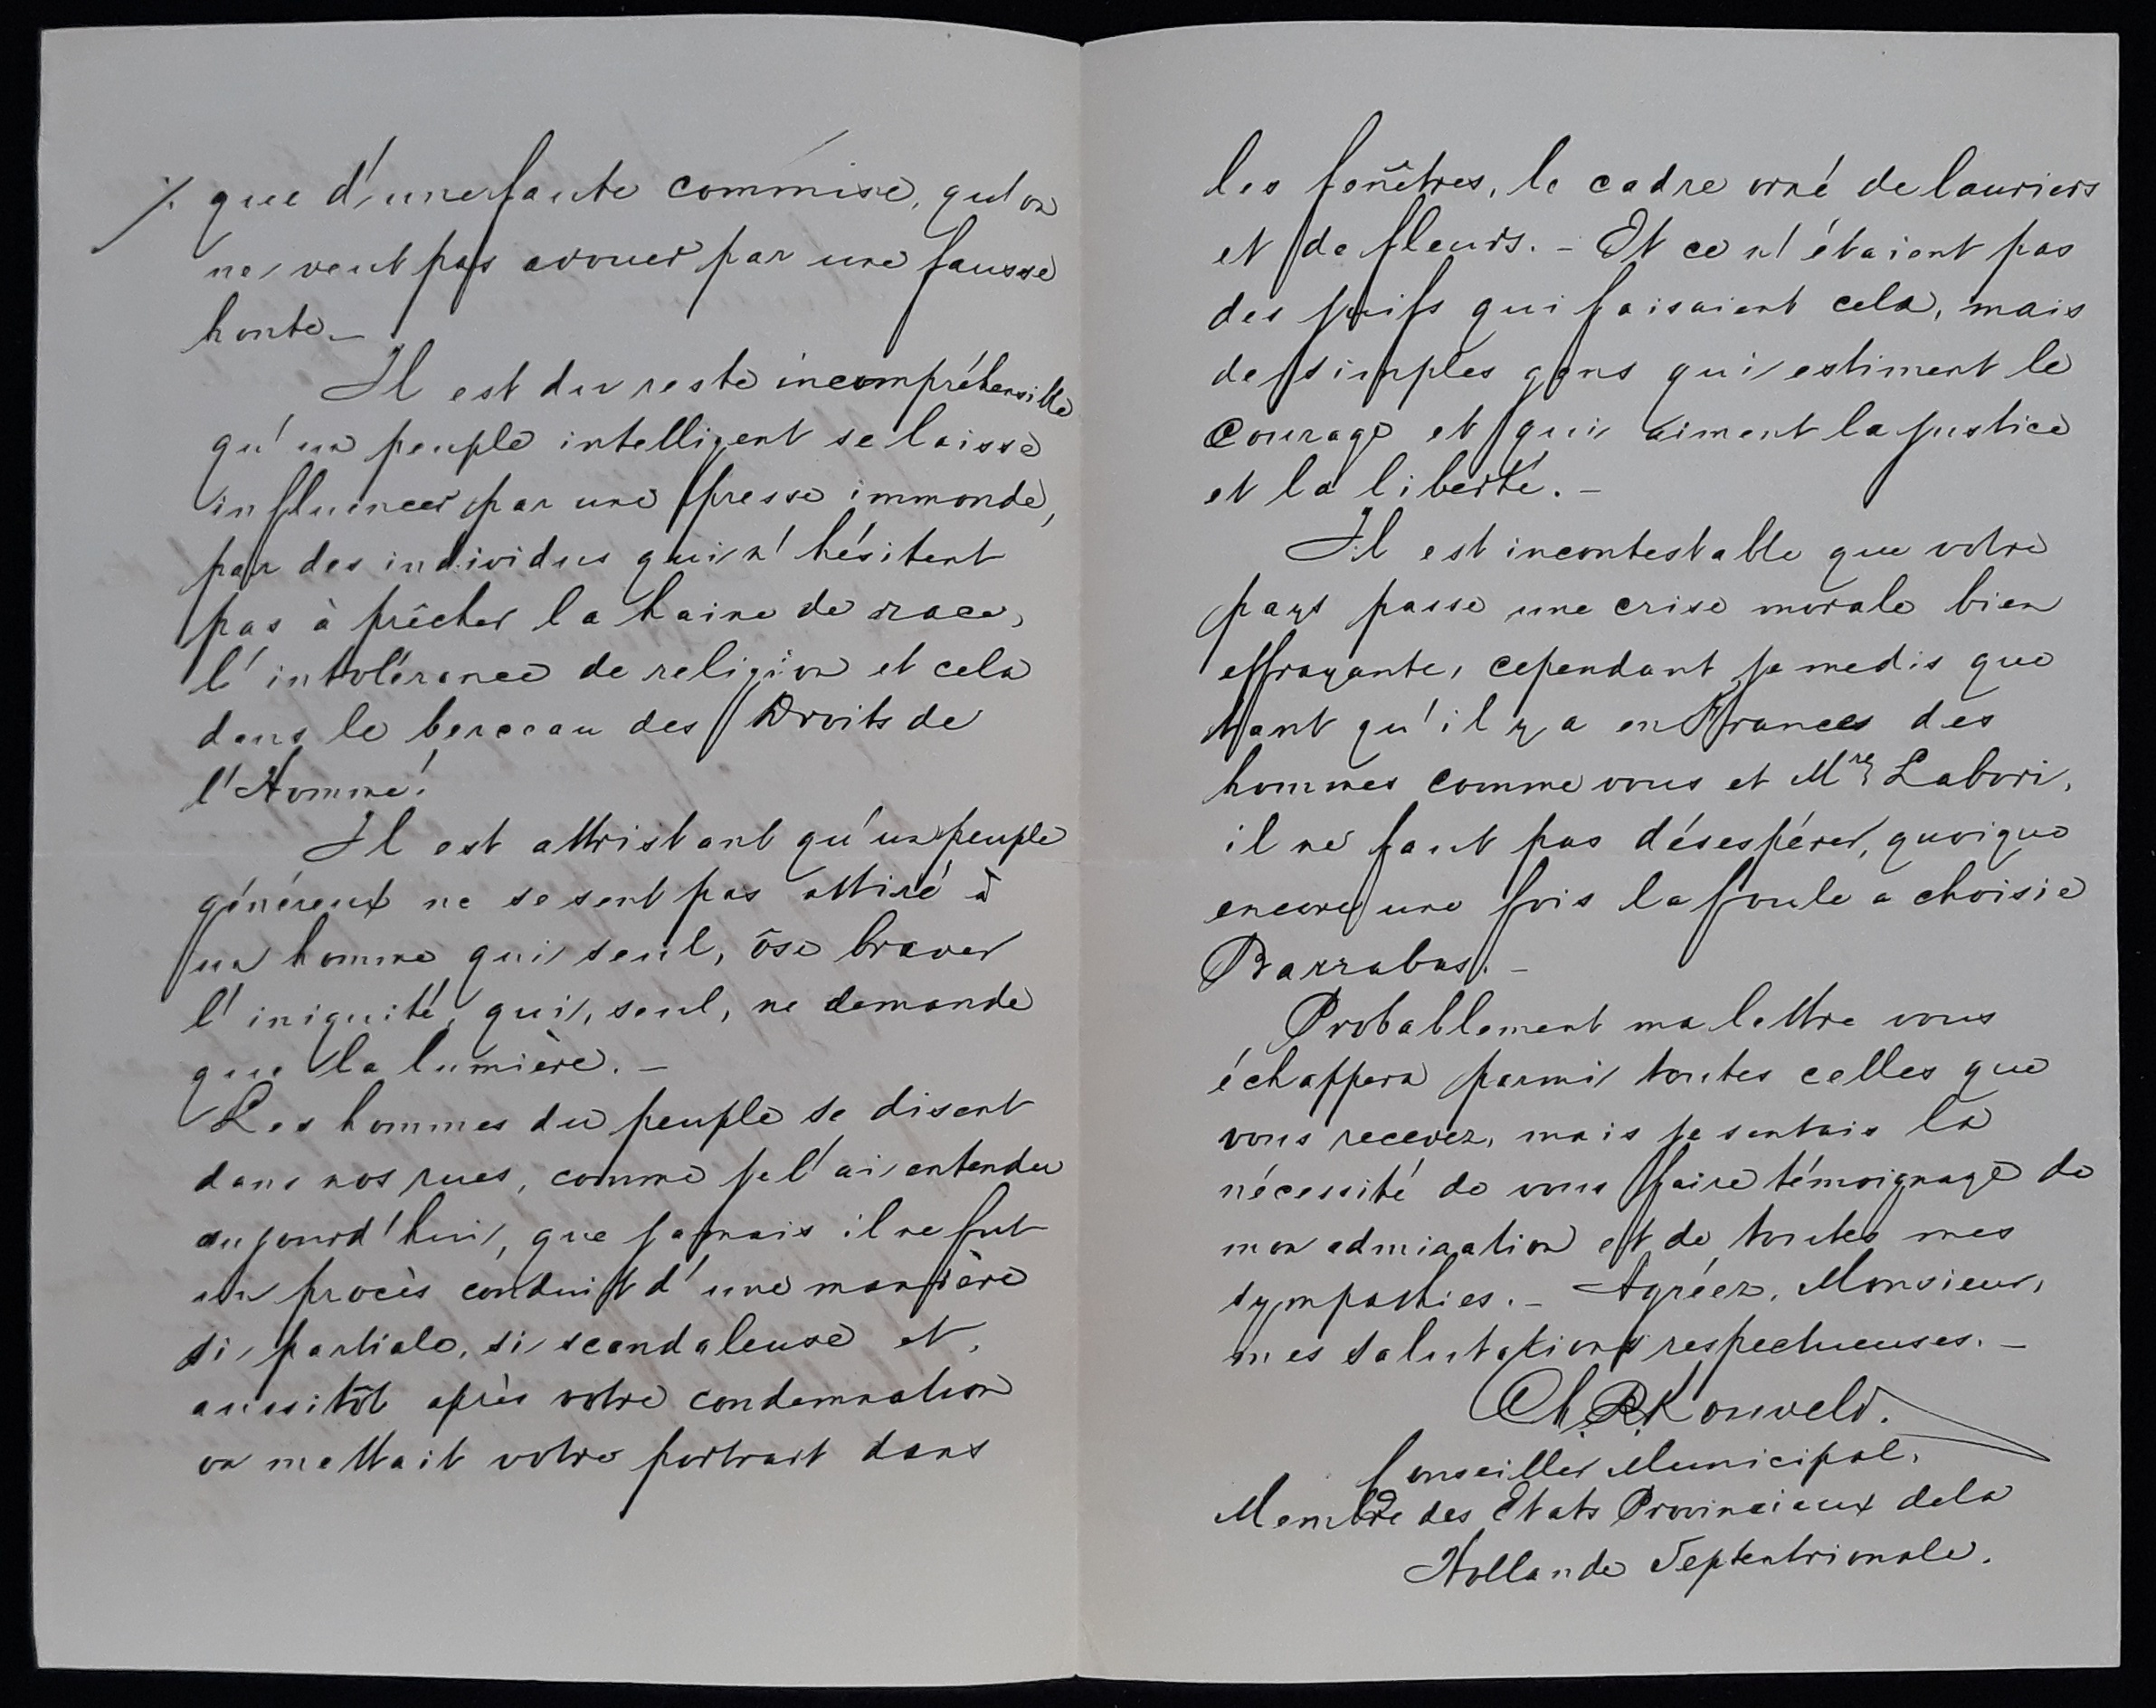 ⁒ que d'une faute commise, qu'on
ne veut pas avouer par une fausse
honte. –
Il est du reste incompréhensible
qu'un peuple intelligent se laisse
influencer par une presse immonde,
par des individus qui n'hésitent
pas à prêcher la haine de race,
l'intolérance de religion et cela
dans le berceau des Droits de
l'Homme!
Il est attristant qu'un peuple
généreux ne se sent pas attiré à
un homme qui seul, ôse braver
l'iniquité, qui, seul, ne demande
que la lumière. –
Les hommes du peuple se disent
dans nos rues, comme je l'ai entendu
aujourd'hui, que jamais il ne fut
un procès conduit d'une manière
si partiale, si scandaleuse et,
aussitôt après votre condamnation
on mettait votre portrait dans
les fenêtres, le cadre orné de lauriers
et de fleurs. – Et ce n'étaient pas
des juifs qui faisaient cela, mais
de simples gens qui estiment le
courage et qui aiment la justice
et la liberté. –
Il est incontestable que votre
pays passe une crise morale bien
effrayante, cependant je me dis que
tant qu'il y a en France des
hommes comme vous et Mre Labori,
il ne faut pas désespérer, quoique
encore une fois la foule a choisie
Barrabas. –
Probablement ma lettre vous
échappera parmi toutes celles que
vous recevez, mais je sentais la
nécessité de vous faire témoignage de
mon admiration et de toutes mes
sympathies. – Agréez, Monsieur,
mes salutations respectueuses. –
Conseiller Municipal,
Membre des Etats Provinciaux de la
Hollande Septentrionale.